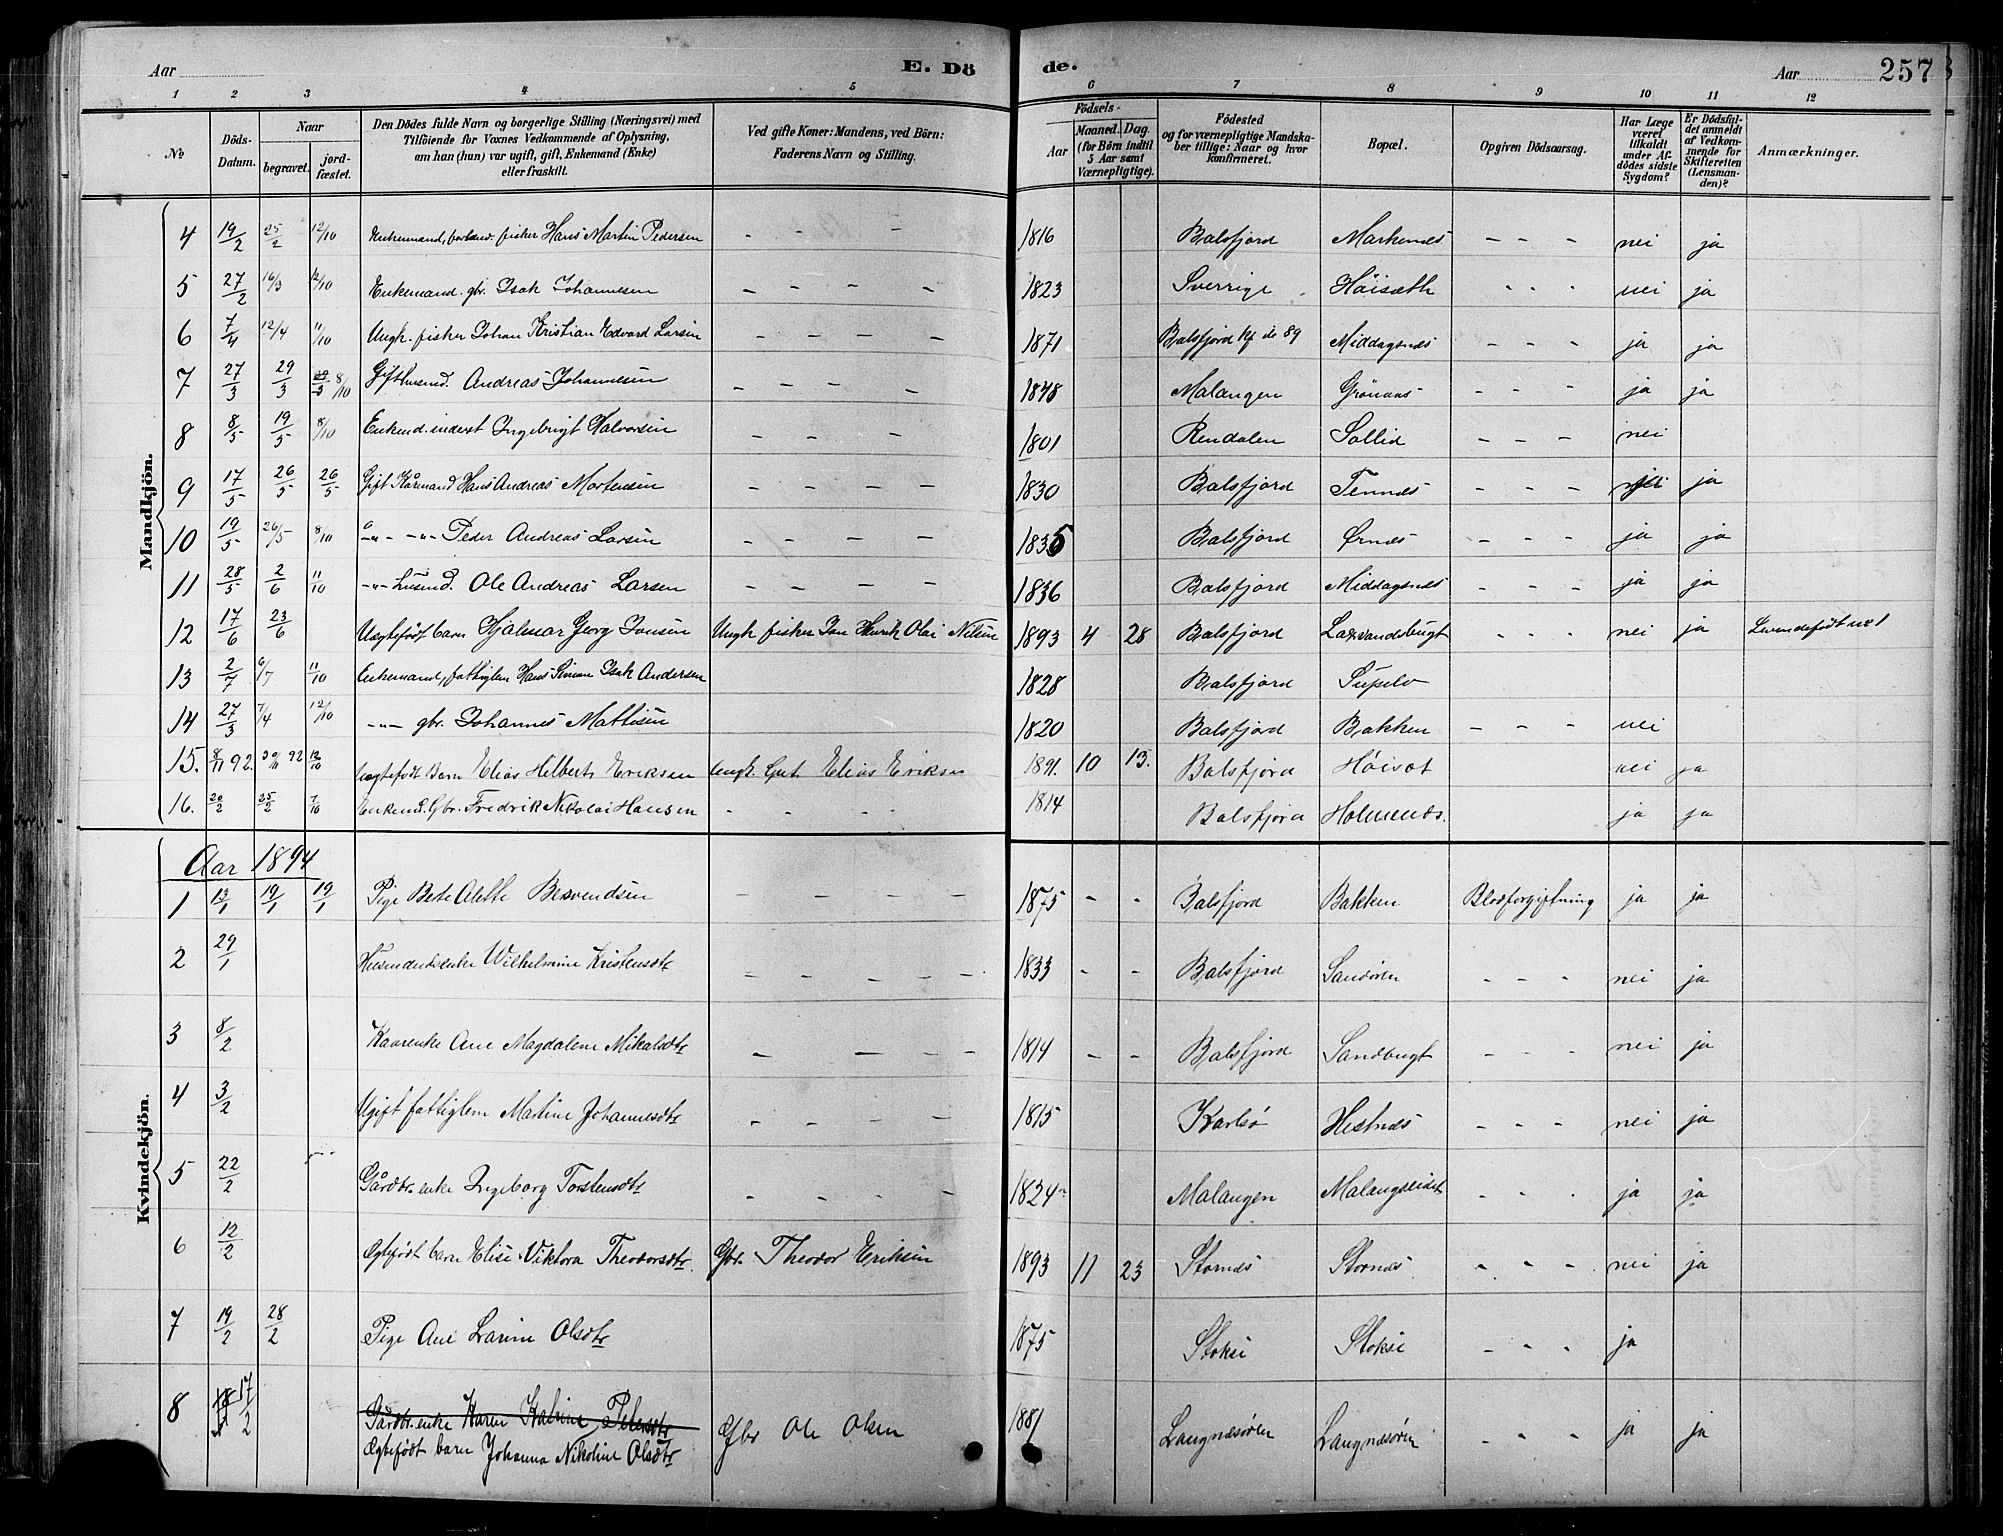 Aar
E. Dö
de.
Aar
257
1 2 3 4 5 6 7 8 9 10 11 12
№
Döds-Datum.
Naar
begravet.
jord-fæstet.
Den Dödes fulde Navn og borgerlige Stilling (Næringsvei) med
Tilföiende for Voxnes Vedkommende af Oplysning,
om han (hun) var ugift, gift, Enkemand (Enke)
eller fraskilt.
Ved gifte Koner: Mandens, ved Börn:
Faderens Navn og Stilling.
Födsels-
Aar
Maaned. Dag.
(for Börn indtil
5 Aar samt
Værnepligtige).
Födested
og for værnepligtige Mandska-
ber tillige: Naar og hvor
konfirmeret.
Bopæl.
Opgiven Dödsaarsag.
Har Læge
været
tilkaldt
under Af-
dödes sidste
Sygdom?
Er Dödsfal-
det anmeldt
af Vedkom-
mende for
Skifteretten
(Lensman-
den)?
Anmærkninger.
Mandkjön.
4 19/2 25/2 12/10 Enkemand, fisker Hans Martin Pedersen - - - 1816 Balsfjord Markenæs - - - nei ja
5 27/2 16/3 12/10 Enkemand. gbr. Isak Johannesen - - - - 1823 Sverrige Höisæth - - - nei ja
6 7/4 12/4 11/10 Ungk. fisker Johan Kristian Edvard Larsen - - - - 1871 Balsfjord kf do 89 Middagsnæs - - - ja ja
7 27/3 29/3 8/10 Gift husmd. Andreas Johannesen - - - - 1848 Malangen Grönaas - - - ja ja
8 8/5 19/5 8/10 Enkemd. inderst Ingebrigt Halvorsen - - - - 1801 Rendalen Sollid - - - nei
9 17/5 26/5 26/5 Gift Kårmand Hans Andreas Mortensen - - - - 1830 Balsfjord Tennæs - - - nei ja
10 19/5 26/5 8/10 -"- -"- Peder Andreas Larsen - - - - 1835 Balsfjord Ørnæs - - - ja ja
11 28/5 2/6 11/10 -"- husmd. Ole Andreas Larsen - - - - 1836 Balsfjord Middagsnæs - - - ja ja
12 17/6 23/6 Uægtefödt barn Hjalmar Georg Jensen Ungk fisker Jan Henrik Olai Nilsen 1893 4 28 Balsfjord Laxvandsbugt - - - nei ja Levendefödt no 1
13 2/7 6/7 11/10 Enkemand, fattiglem Hans Simon Isak Andersen 1828 Balsfjord
14 27/3 7/4 12/10 -"- gbr. Johannes Mattisen 1820 Balsfjord Bakken - - - nei
15. 8/11 92. 30/11 92 12/10 Uægtefödt Barn Elias Helbert Eriksen Ungk. Gut Elias Eriksen 1891. 10 13. Balsfjord Höisæt nei ja
16. 20/2 25/2 7/10 Enkemd. Gbr. Fredrik Nikolai Hansen - - - 1814 Balsfjord Holmenæs. ja ja
Kvindekjön.
Aar 1894
1 13/1 19/1 19/1 Pige Berte Alette Berntsen - - - - 1875 - - Balsfjord Bakken Blodforgiftning ja ja
2 29/1 Husmandsenke Wilhelmine Kristensdtr - - - - 1833 - - Balsfjord Sandören - - - nei ja
3 8/2 Kaarenke Ane Magdalene Mikalsdtr - - - - 1814 - - Balsfjord Sandbugt - - - nei ja
4 3/2 Ugift fattiglem Martine Johannesdtr - - - - 1815 Karlsö Hestnæs - - - nei ja
5 22/2 Gårdbr. enke Ingeborg Torstensdtr - - - - 1824 Malangen Malangseidet - - - ja ja
6 12/2 Ægtefödt barn Elise Viktora Theodorsdtr. Gbr. Theodor Eriksen 1893 11 23 Stornæs Stornæs - - - nei ja
7 19/2 28/2 Pige Ane Larine Olsdtr 1875 - - - ja
8 17/2 Gårdbr. enke Karen Katrine Petersdtr
Ægtefödt barn Johanna Nikoline Olsdtr Gbr Ole Olsen 1881 Langnæsören Langnæsören - - - ja ja